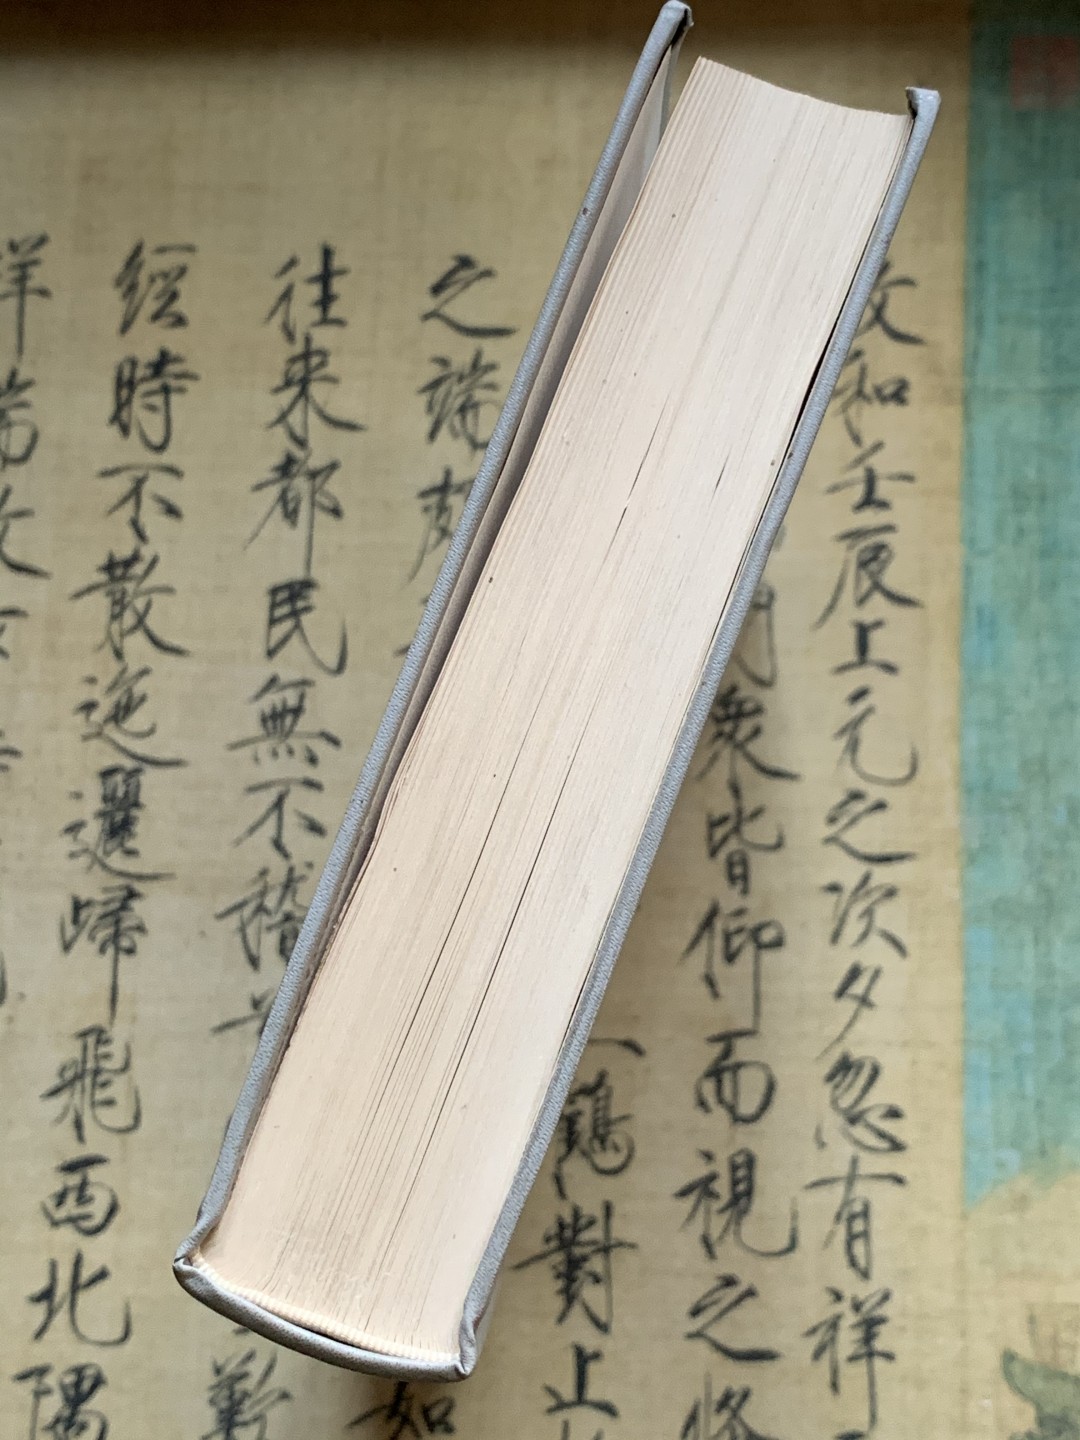 和壬辰上元之次夕忽有祥
衆皆仰而視之倏
鶴對止
之端頗如
往來都民無不稽歎
經時不散迤邐歸飛西北隅